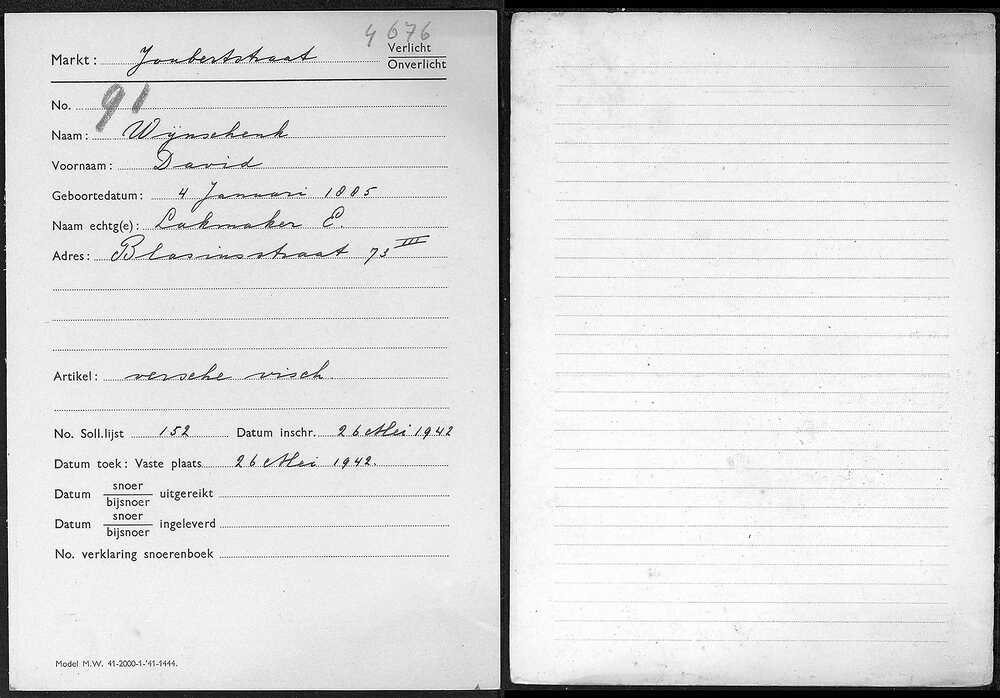 4676
Markt: Joubertstraat Verlicht
Onverlicht
No. 91
Naam: Wijnschenk
Voornaam: David
Geboortedatum: 4 Januari 1885
Naam echtg(e): Lakmaker E.
Adres: Blasiusstraat 73 III
Artikel: versche visch
No. Soll.lijst 152 Datum inschr. 26 Mei 1942
Datum toek: Vaste plaats 26 Mei 1942.
Datum snoer
bijsnoer uitgereikt
Datum snoer
bijsnoer ingeleverd
No. verklaring snoerenboek
Model M.W. 41-2000-1-'41-1444.